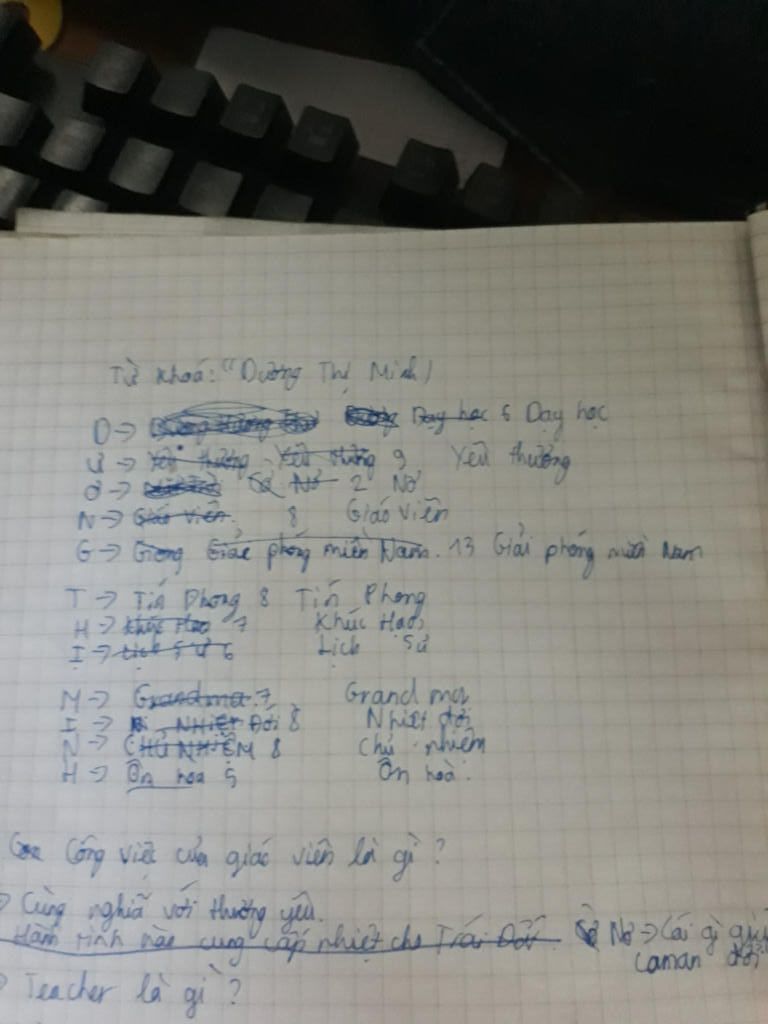 Từ khoá: "Dương Thị Minh)
D → Dạy học 5 Dạy học
Ư → Yêu thương Yêu thương 9 Yêu thương
Ơ → Nơ 2 Nơ
N → Giáo viên 8 Giáo viên
G → Giải phóng miền Nam. 13 Giải phóng miền Nam
T → Tiá Phong 8 Tiá Phong
H → Khúc Hạo 7 Khúc Hạo
Ị → Lịch sử 6 Lịch sử
M → Grandma 7 Grandma
I → NHIỆT ĐỚI 8 Nhiệt đới
N → CHỦ NHIỆM 8 Chủ nhiệm
H → Ôn hoà 5 Ôn hoà.
Công việc của giáo viên là gì?
Cùng nghĩa với thương yêu.
Hành tinh nào cung cấp nhiệt cho Trái Đất. Nơ → Cái gì
caman
Teacher là gì?